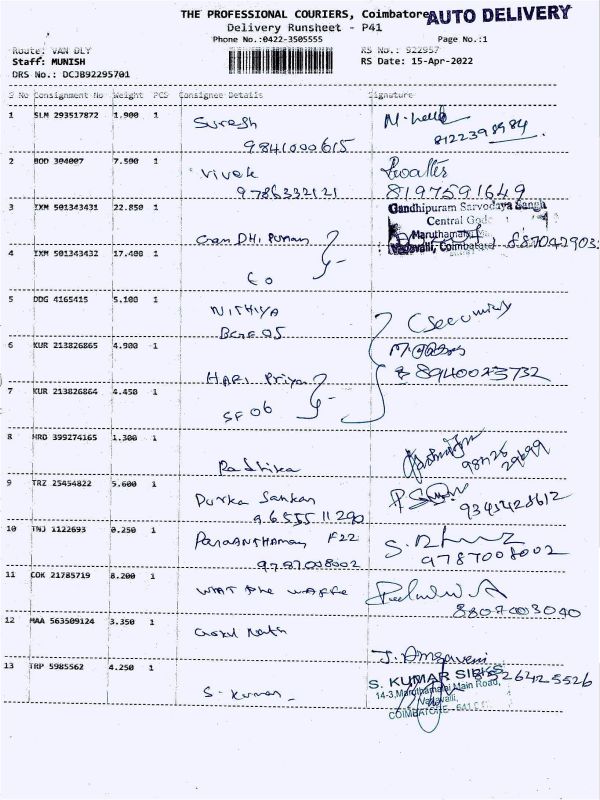 THE PROFESSIONAL COURIERS, Coimbatore
AUTO DELIVERY
Delivery Runsheet - P41
Phone No.:0422-3505555
Page No.:1
Route: VAN DLY
RS No.: 922957
Staff: MUNISH
RS Date: 15-Apr-2022
DRS No.: DCJB92295701
S No Consignment No Weight PCS Consignee Details Signature
1 SLM 293517872 1.900 1
Suresh
9841000615
8122398984
2 BOD 304007 7.500 1
Vivek
9786332121
8197591649
3 IXM 501343431 22.850 1
Gandhipuram Sarvodaya Sangh
Central
Maruthamalai
Vadavalli, Coimbatore
4 IXM 501343432 17.400 1
5 DDG 4165415 5.100 1
NITHIYA
6 KUR 213826865 4.900 1
HARI Priya
8940023732
7 KUR 213826864 4.450 1
SF 06
8 HRD 399274165 1.300 1
Radhika
9 TRZ 25454822 5.600 1
Sankar
9655511290
9345428612
10 TNJ 1122693 0.250 1
F22
9787008002
9787008002
11 COK 21785719 8.200 1
WHAT THE WAFFE
8807003040
12 MAA 563509124 3.350 1
Gokul Nath
13 TRP 5985562 4.250 1
S. Kumar
S. KUMAR SILKS
8526425526
14-3, Maruthamalai Main Road,
Vadavalli,
COIMBATORE